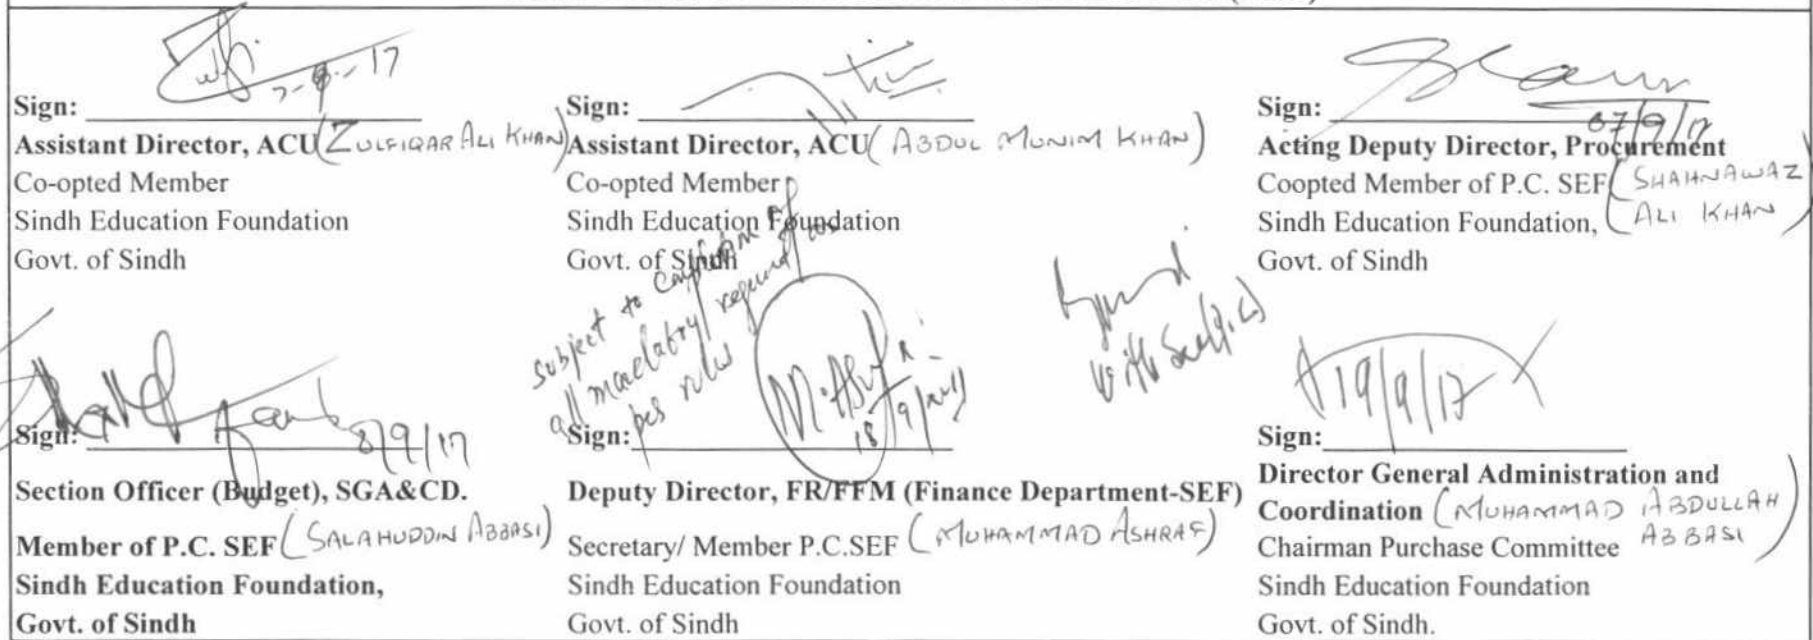 7-9-17
Sign:
Assistant Director, ACU (ZULFIQAR ALI KHAN)
Co-opted Member
Sindh Education Foundation
Govt. of Sindh
Sign:
Assistant Director, ACU (ABDUL MUNIM KHAN)
Co-opted Member
Sindh Education Foundation
Govt. of Sindh
Sign:
07/9/17
Acting Deputy Director, Procurement
Coopted Member of P.C. SEF (SHAHNAWAZ
Sindh Education Foundation, ALI KHAN)
Govt. of Sindh
Sign:
8/9/17
Section Officer (Budget), SGA&CD.
Member of P.C. SEF (SALAHUDDIN ABBASI)
Sindh Education Foundation,
Govt. of Sindh
subject to of
all mandatory
per rules
Sign:
Deputy Director, FR/FFM (Finance Department-SEF)
Secretary/ Member P.C.SEF (MUHAMMAD ASHRAF)
Sindh Education Foundation
Govt. of Sindh
19/9/17
Sign:
Director General Administration and
Coordination (MUHAMMAD ABDULLAH
Chairman Purchase Committee ABBASI)
Sindh Education Foundation
Govt. of Sindh.